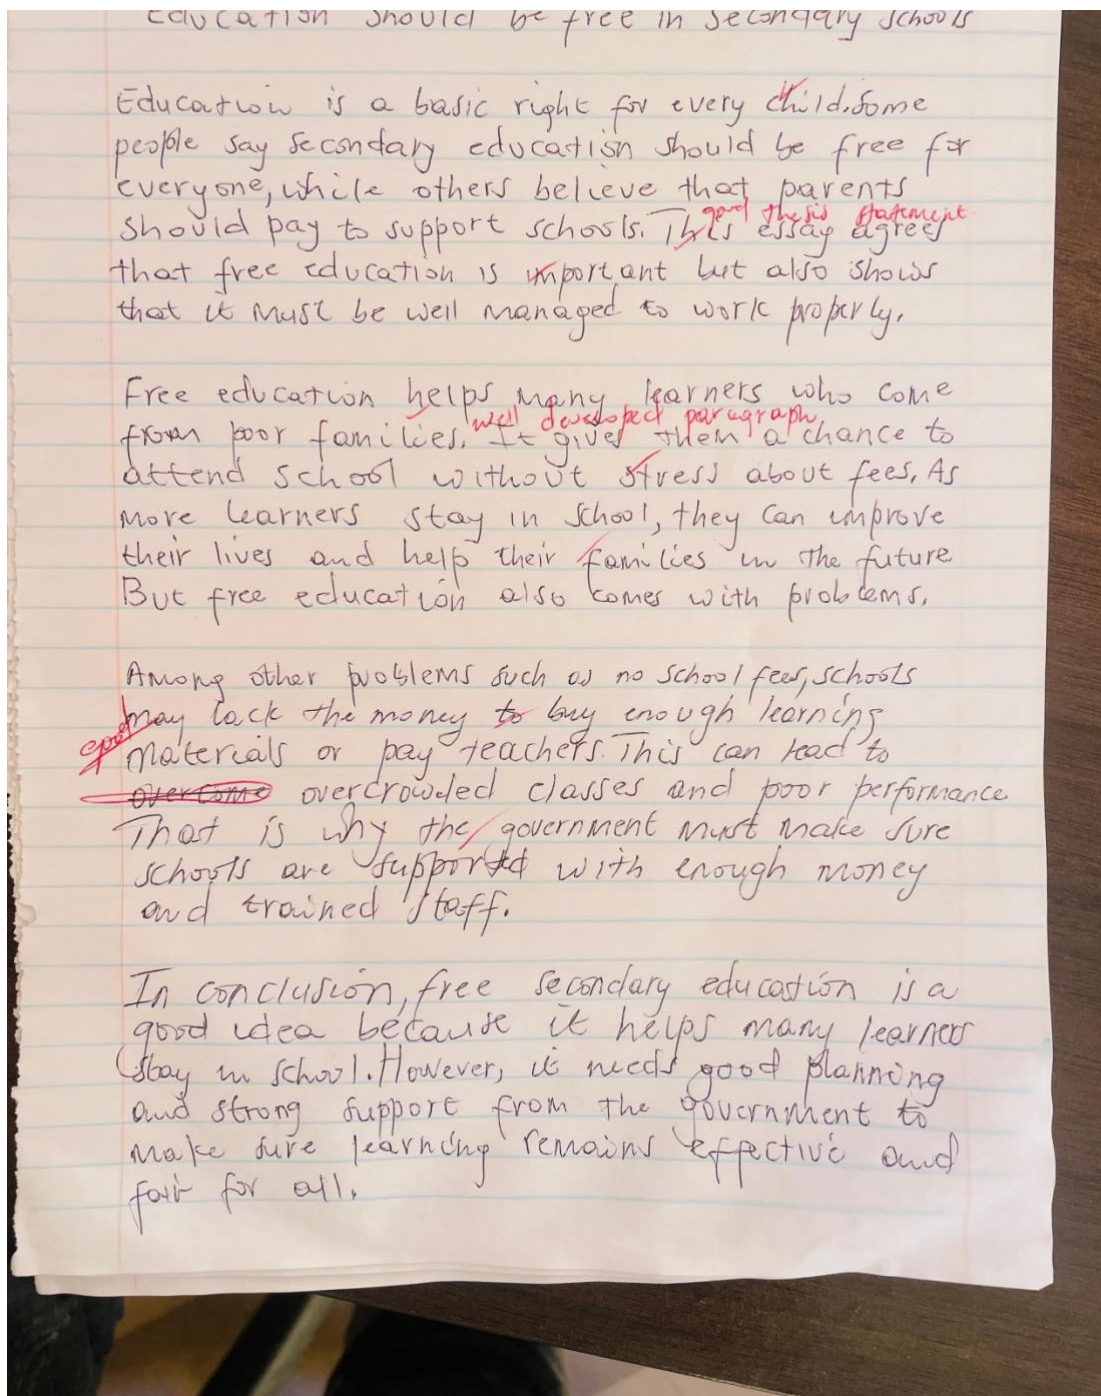 Education should be free in secondary schools
Education is a basic right for every child. Some
people say secondary education should be free for
everyone, while others believe that parents
good thesis statement
should pay to support schools. This essay agrees
that free education is important but also shows
that it must be well managed to work properly.
Free education helps many learners who come
well developed paragraph
from poor families. It gives them a chance to
attend school without stress about fees. As
more learners stay in school, they can improve
their lives and help their families in the future
But free education also comes with problems.
Among other problems such as no school fees, schools
may lack the money to buy enough learning
good
materials or pay teachers. This can lead to
overcome overcrowded classes and poor performance
That is why the government must make sure
schools are supported with enough money
and trained staff.
In conclusion, free secondary education is a
good idea because it helps many learners
stay in school. However, it needs good planning
and strong support from the government to
make sure learning remains effective and
fair for all.